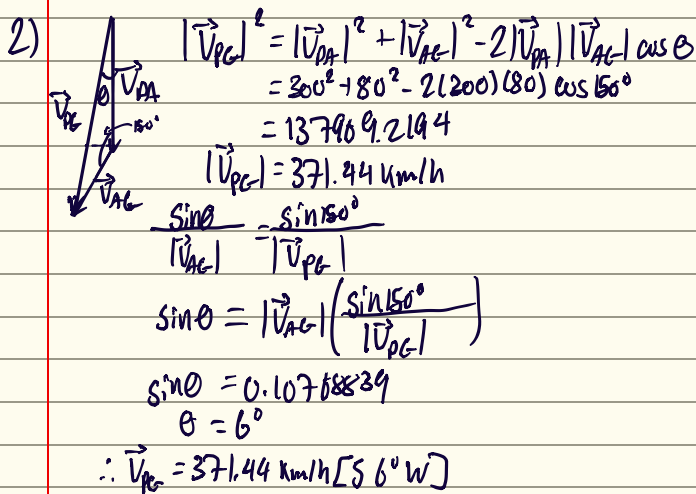 2)
|V⃗PG|² = |V⃗PA|² + |V⃗AG|² - 2|V⃗PA||V⃗AG| cos θ
= 300² + 80² - 2(300)(80) cos 150°
= 137969.2194
|V⃗PG| = 371.44 km/h
V⃗PA
θ
V⃗PG
150°
V⃗AG
sinθ/|V⃗AG| = sin150°/|V⃗PG|
sinθ = |V⃗AG|(sin150°/|V⃗PG|)
sinθ = 0.10768839
θ = 6°
∴ V⃗PG = 371.44 km/h [S 6° W]